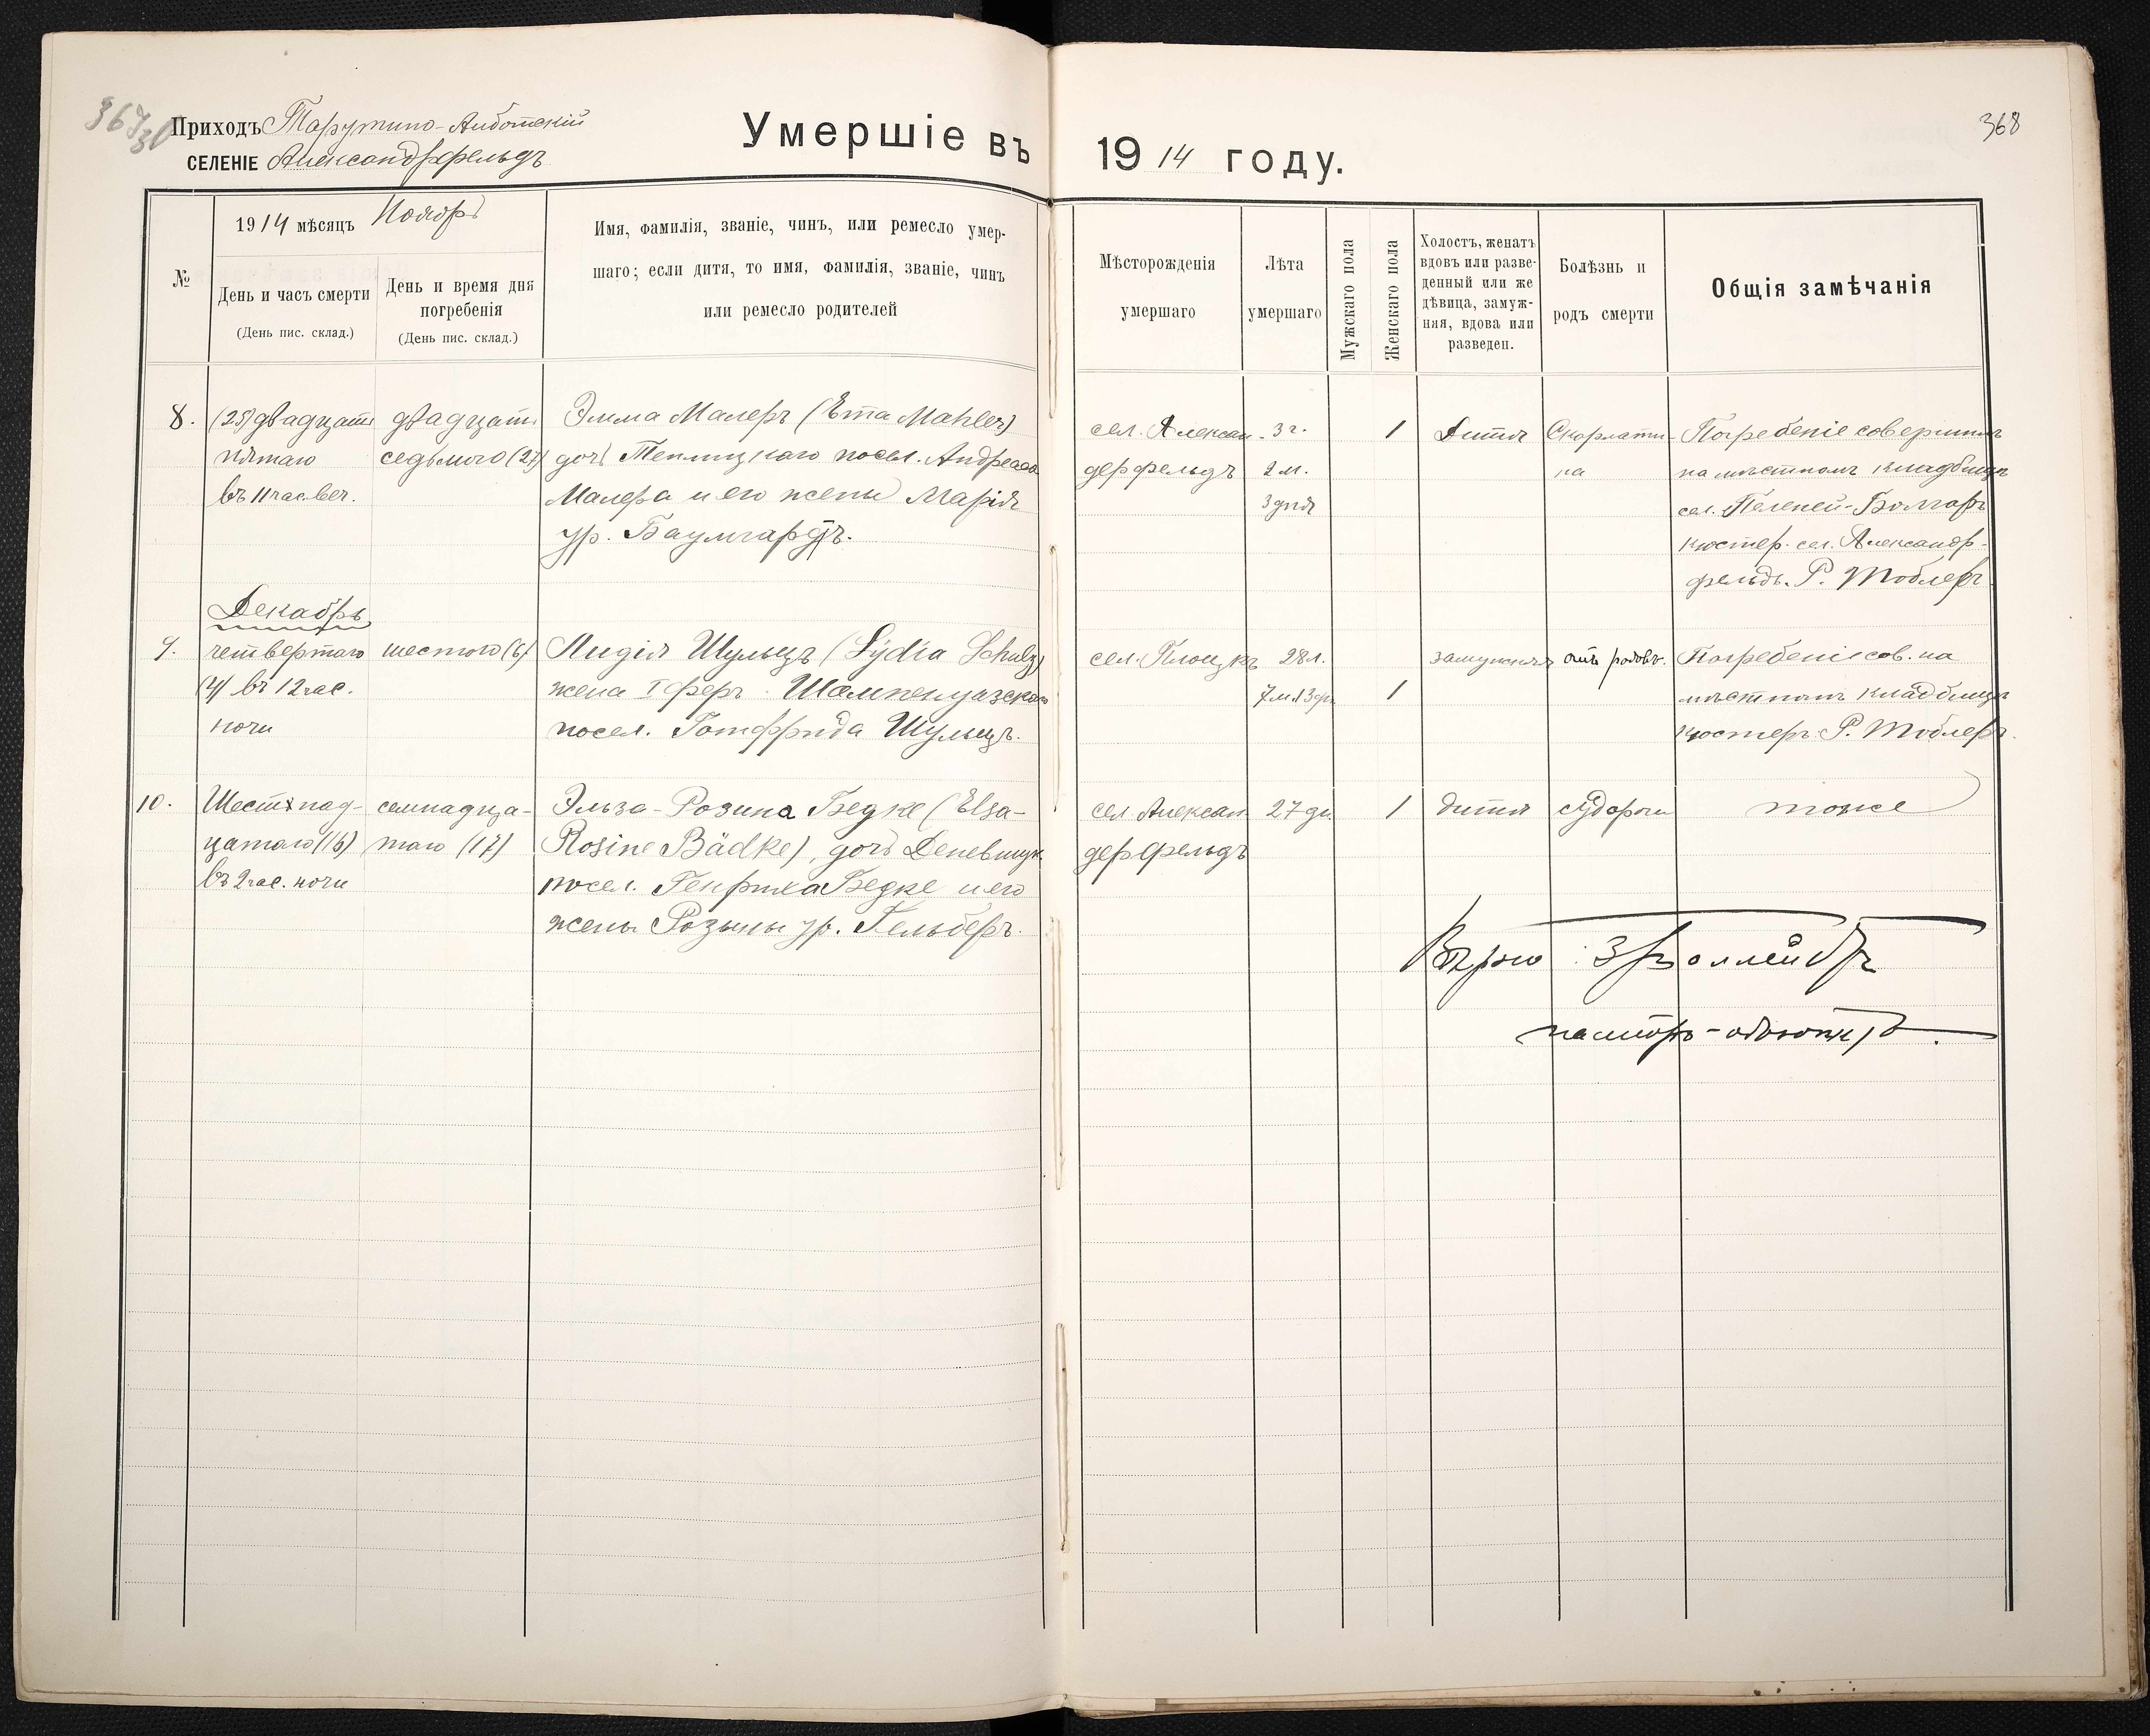 368
Приходъ Тарутино-Анботскій
СЕЛЕНІЕ Александрфельдъ
Умершіе въ 1914 году.
№
1914 мѣсяцъ Ноябрь
День и часъ смерти
(День пис. склад.)
День и время дня
погребенія
(День пис. склад.)
Имя, фамилія, званіе, чинъ, или ремесло умер-
шаго; если дитя, то имя, фамилія, званіе, чинъ
или ремесло родителей
Мѣсторожденія
умершаго
Лѣта
умершаго
Мужскаго пола
Женскаго пола
Холостъ, женатъ
вдовъ или разве-
денный или же
дѣвица, замуж-
няя, вдова или
разведен.
Болѣзнь и
родъ смерти
Общія замѣчанія
8.
(25) двадцать
пятаго
въ 11 час. веч.
двадцать
седьмого (27)
Эмма Малеръ (Emma Mahler)
дочь Теплицкаго посел. Андреаса
Малера и его жены Марія
ур. Баумгардтъ.
сел. Алексан-
дерфельдъ
3 г.
2 м.
3 дня
1
Дитя
Скарлати-
на
Погребеніе совершилъ
на мѣстномъ кладбищѣ
сел. Пеленей-Болгаръ
кюстер. сел. Александр-
фельдъ. Р. Тоблеръ.
Декабрь
9.
четвертаго
(4) въ 12 час.
ночи
шестого (6)
Лидія Шульцъ (Lydia Schulz)
жена Ферш. Шампенуазскаго
посел. Готфрида Шульцъ.
сел. Плоцкъ
28 л.
7 м. 13 дн.
1
замужняя
отъ родовъ.
Погребеніе сов. на
мѣстномъ кладбищѣ
кюстеръ Р. Тоблеръ.
10.
Шестнад-
цатаго (16)
въ 2 час. ночи
семнадца-
таго (17)
Эльза-Розина Бедке (Elsa-
Rosine Bädke), дочь Деневицк.
посел. Генриха Бедке и его
жены Розины ур. Гельберъ.
сел. Алексан-
дерфельдъ
27 дн.
1
дитя
судороги
тоже
Вѣрно:
пасторъ-адъюнктъ.